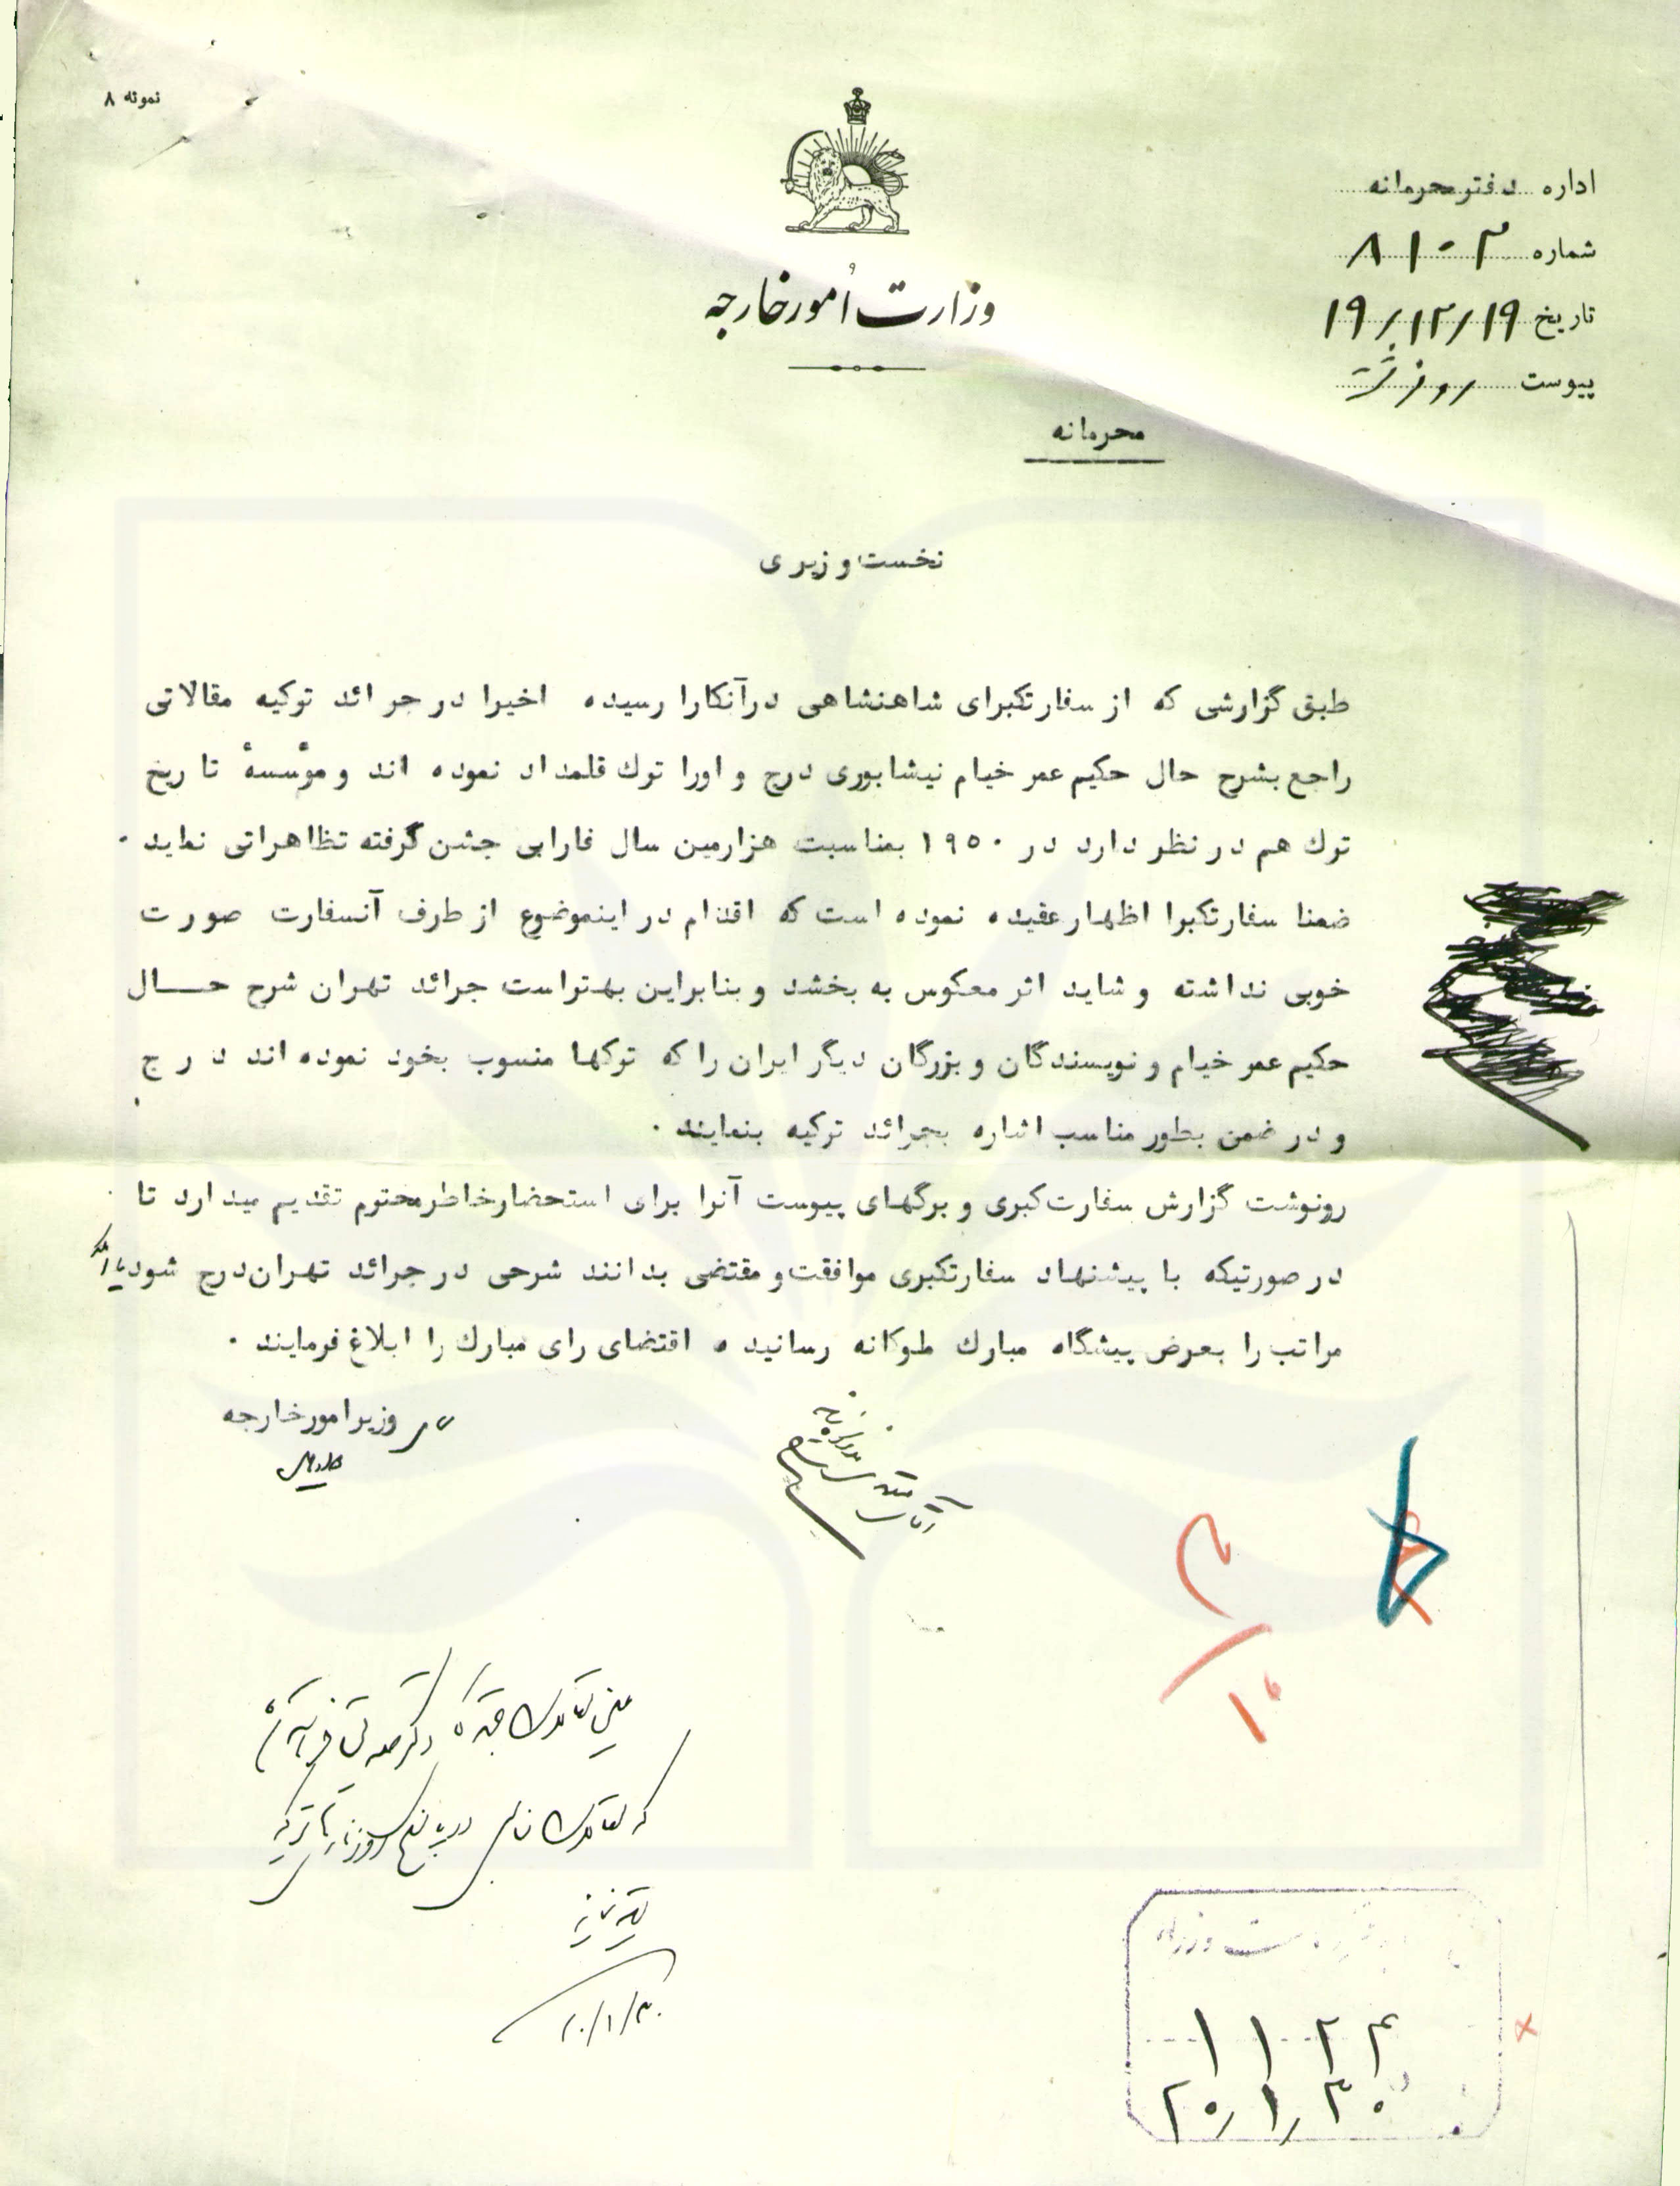 نمونه ۸
اداره دفتر محرمانه
شماره ۸۱۰۳
تاریخ ۱۹/۱۲/۱۹
پیوست رونوشت
وزارت اُمور خارجه
محرمانه
نخست وزیری
طبق گزارشی که از سفارتکبرای شاهنشاهی درآنکارا رسیده اخیرا در جرائد ترکیه مقالاتی
راجع بشرح حال حکیم عمر خیام نیشابوری درج و اورا ترك قلمداد نموده اند و مؤسسهٔ تاریخ
ترك هم در نظر دارد در ۱۹۵۰ بمناسبت هزارمین سال فارابی جشن گرفته تظاهراتی نماید .
ضمنا سفارتکبرا اظهار عقیده نموده است که اقدام در اینموضوع از طرف آنسفارت صورت
خوبی نداشته و شاید اثر معکوس به بخشد و بنابراین بهتراست جرائد تهران شرح حـــال
حکیم عمر خیام و نویسندگان و بزرگان دیگر ایران را که ترکها منسوب بخود نموده اند درج
و در ضمن بطور مناسب اشاره بجرائد ترکیه بنمایند .
رونوشت گزارش سفارت کبری و برگهای پیوست آنرا برای استحضارخاطرمحترم تقدیم میدارد تا
در صورتیکه با پیشنهاد سفارتکبری موافقت و مقتضی بدانند شرحی در جرائد تهران درج شود یا آنکه
مراتب را بعرض پیشگاه مبارك ملوکانه رسانیده اقتضای رای مبارك را ابلاغ فرمایند .
وزیر امور خارجه
۲۰/۱/۳۰
۱۱۲۴
۲۰/۱/۳۰